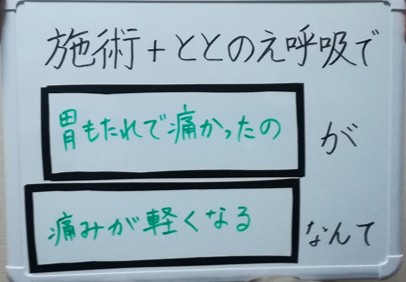 施術+ととのえ呼吸で
胃もたれで痛かったの が
痛みが軽くなる なんて